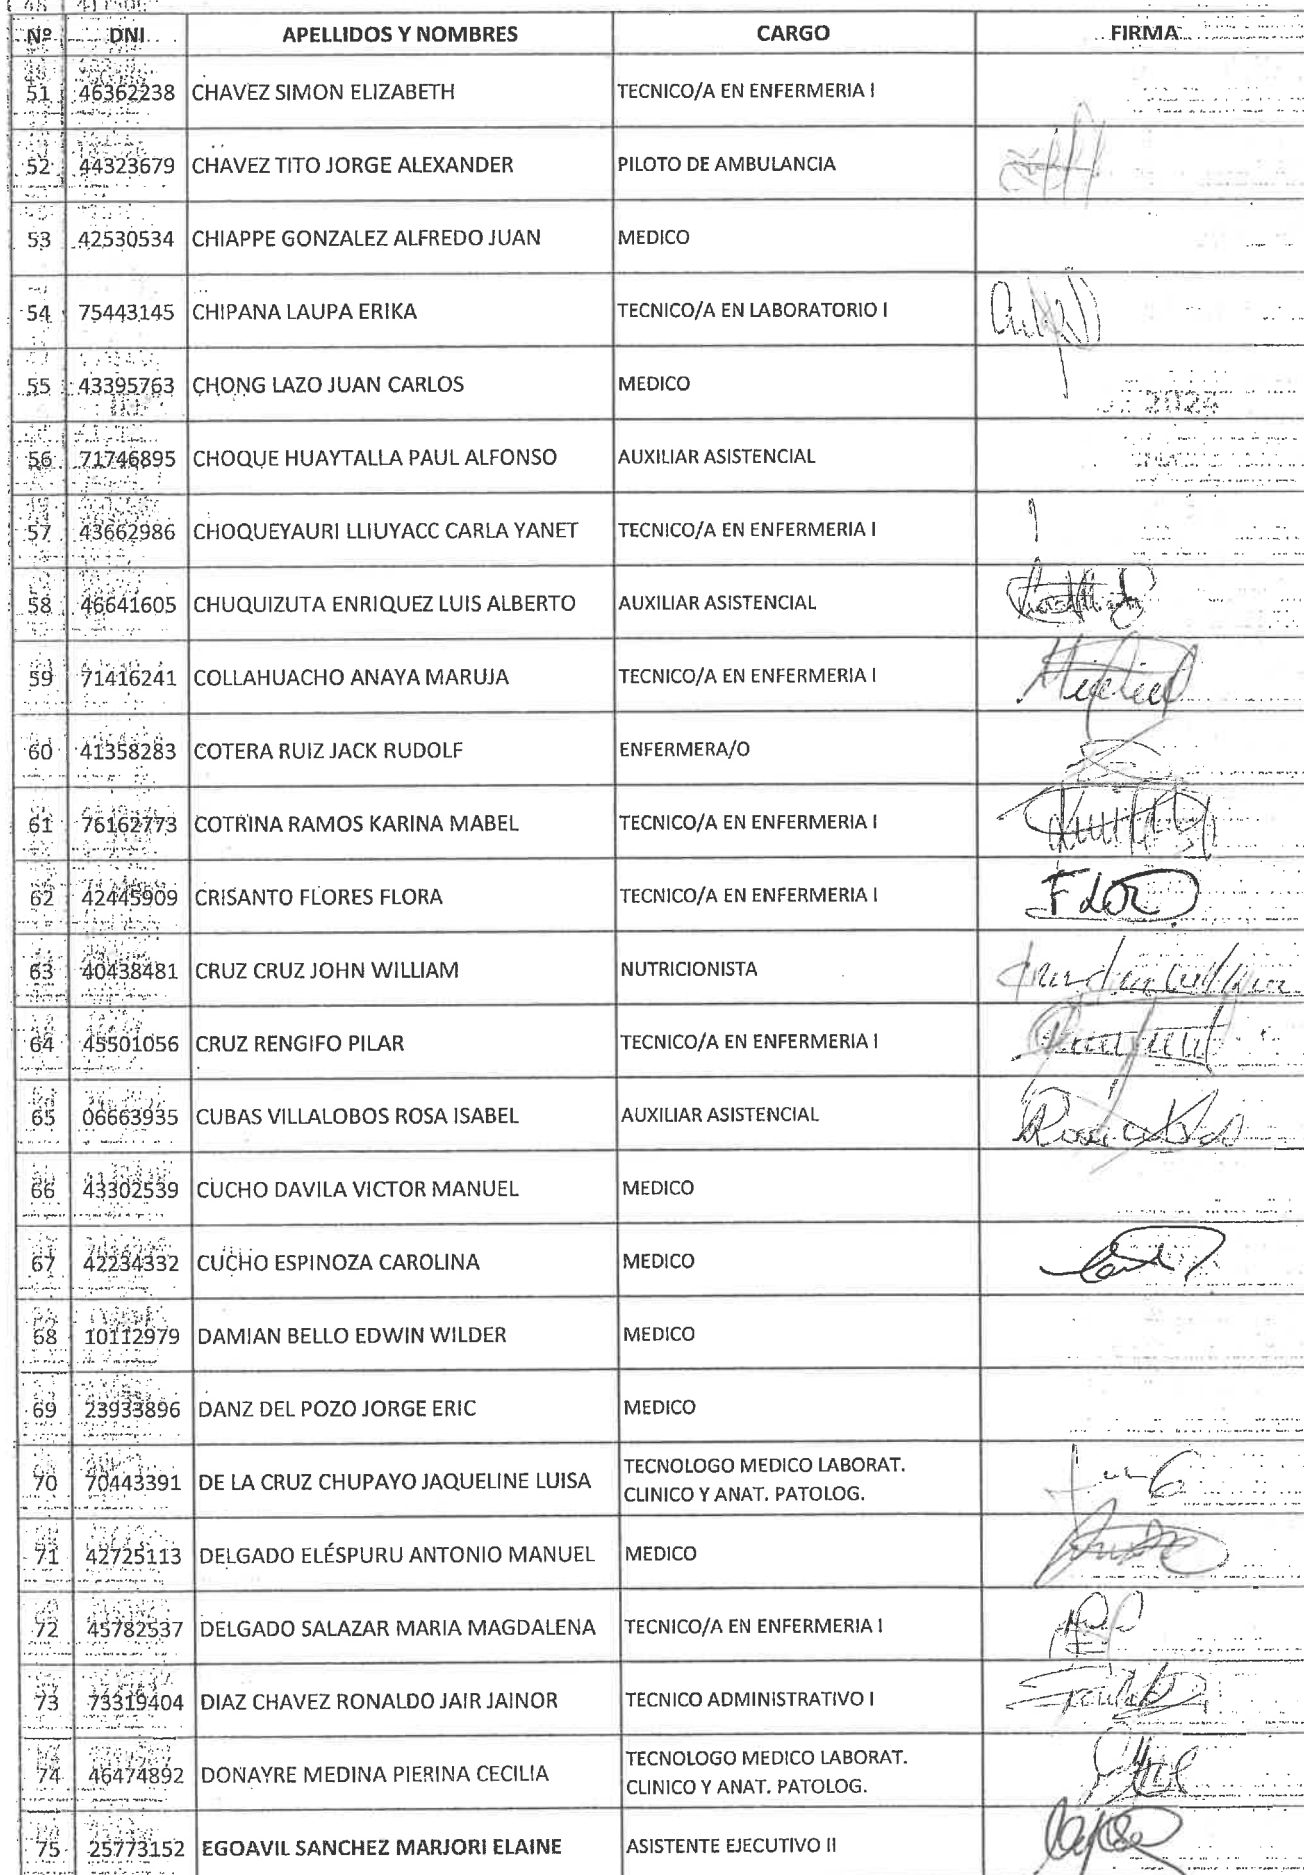 Nº DNI APELLIDOS Y NOMBRES CARGO FIRMA
51 46362238 CHAVEZ SIMON ELIZABETH TECNICO/A EN ENFERMERIA I
52 44323679 CHAVEZ TITO JORGE ALEXANDER PILOTO DE AMBULANCIA
53 42530534 CHIAPPE GONZALEZ ALFREDO JUAN MEDICO
54 75443145 CHIPANA LAUPA ERIKA TECNICO/A EN LABORATORIO I
55 43395763 CHONG LAZO JUAN CARLOS MEDICO
2024
56 71746895 CHOQUE HUAYTALLA PAUL ALFONSO AUXILIAR ASISTENCIAL
57 43662986 CHOQUEYAURI LLIUYACC CARLA YANET TECNICO/A EN ENFERMERIA I
58 46641605 CHUQUIZUTA ENRIQUEZ LUIS ALBERTO AUXILIAR ASISTENCIAL
59 71416241 COLLAHUACHO ANAYA MARUJA TECNICO/A EN ENFERMERIA I
60 41358283 COTERA RUIZ JACK RUDOLF ENFERMERA/O
61 76162773 COTRINA RAMOS KARINA MABEL TECNICO/A EN ENFERMERIA I
62 42445909 CRISANTO FLORES FLORA TECNICO/A EN ENFERMERIA I
63 40438481 CRUZ CRUZ JOHN WILLIAM NUTRICIONISTA
64 45501056 CRUZ RENGIFO PILAR TECNICO/A EN ENFERMERIA I
65 06663935 CUBAS VILLALOBOS ROSA ISABEL AUXILIAR ASISTENCIAL
66 43302539 CUCHO DAVILA VICTOR MANUEL MEDICO
67 42234332 CUCHO ESPINOZA CAROLINA MEDICO
68 10112979 DAMIAN BELLO EDWIN WILDER MEDICO
69 23933896 DANZ DEL POZO JORGE ERIC MEDICO
70 70443391 DE LA CRUZ CHUPAYO JAQUELINE LUISA TECNOLOGO MEDICO LABORAT.
CLINICO Y ANAT. PATOLOG.
71 42725113 DELGADO ELÉSPURU ANTONIO MANUEL MEDICO
72 45782537 DELGADO SALAZAR MARIA MAGDALENA TECNICO/A EN ENFERMERIA I
73 73319404 DIAZ CHAVEZ RONALDO JAIR JAINOR TECNICO ADMINISTRATIVO I
74 46474892 DONAYRE MEDINA PIERINA CECILIA TECNOLOGO MEDICO LABORAT.
CLINICO Y ANAT. PATOLOG.
75 25773152 EGOAVIL SANCHEZ MARJORI ELAINE ASISTENTE EJECUTIVO II